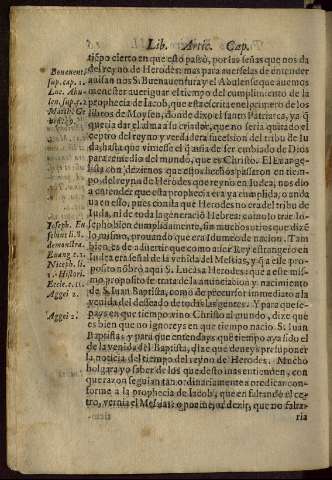 Lib. Artic. Cap.
tiẽpo cierto en que esto passò, por las señas que nos da
del reyno de Herodes: mas para auerselas de entender
auisan nos S. Buenauentura y el Abulense que auemos
menester aueriguar el tiempo del cumplimento de la
prophecia de Iacob, que esta escrita en el primero de los
libros de Moysen, donde dixo el santo Patriarca, ya q̃
queria dar el alma a su criador, que no seria quitado el
ceptro del reyno y verdadera sucession del tribu de Iu
da, hasta que viniesse el q̃ auia de ser embiado de Dios
para remedio del mundo, que es Christo. El Euange-
lista con dezirnos que estos hechos passaron en tiem-
po del reyno de Herodes que reyno en Iudea, nos dio
a entender que esta prophecia era ya cumplida, o anda
ua en esto, pues consta que Herodes no era del tribu de
Iuda, ni de toda la generaciõ Hebrea: como lo trae Io-
sepho bien cumplidamente, sin muchos otros que dizẽ
lo mismo, prouando que era Idumeo de nacion. Tam
bien es de aduertir que como auer Rey estrangero en
Iudea era señal de la venida del Messias, y q̃ a esse pro-
posito nõbrò aqui S. Lucas a Herodes: que a esse mis-
mo proposito se trata de la anunciacion y nacimiento
de S. Iuan Baptista, como de precursor immediato a la
venida del desseado de todas las gentes. Y para que se-
pays en que tiempo vino Christo al mundo, dize que
es bien que no ignoreys en que tiempo nacio S. Iuan
Baptista: y para que entendays que tiempo aya sido el
de la venida del Baptista, dize que deueys presuponer
la noticia del tiempo del reyno de Herodes. Mucho
holgara yo saber de los que desto inas entienden, con
que razon seguian tan ordinariamente a predicar con-
forme a la prophecia de Iacob, que en faltando el ce-
tro, vernia el Messias: o por mejor dezir, que no falta-
ria
Bonauent.
sup. cap. 1.
Luc. Abu-
len. sup. c. 2
Matth. Ge
nes. 49. b.
Ioseph. Eu
sebius li. 8.
demonstra.
Euang c. 1.
Niceph. li.
1. Histori.
Eccle. c. 11.
Aggei 2.
Aggei 2.